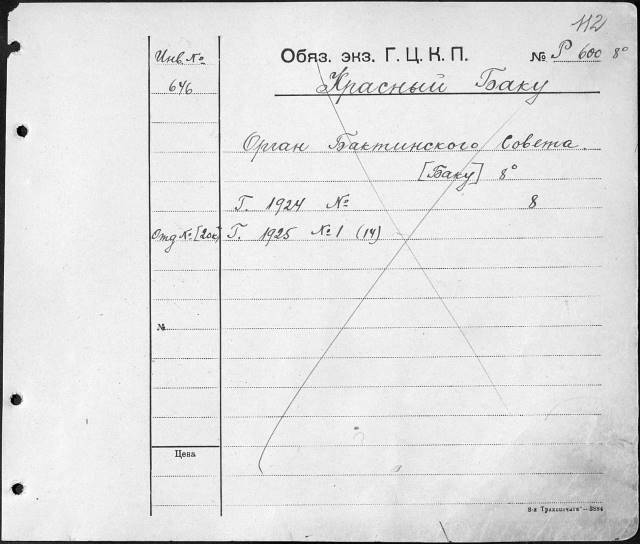 112
Инв. №
646
Обяз. экз. Г. Ц. К. П. № Р 600 8°
Красный Баку
Орган Бактинского Совета.
[Баку] 8°
Г. 1924 № 8
Отд № [20к] Г. 1925 № 1 (14)
№
Цена